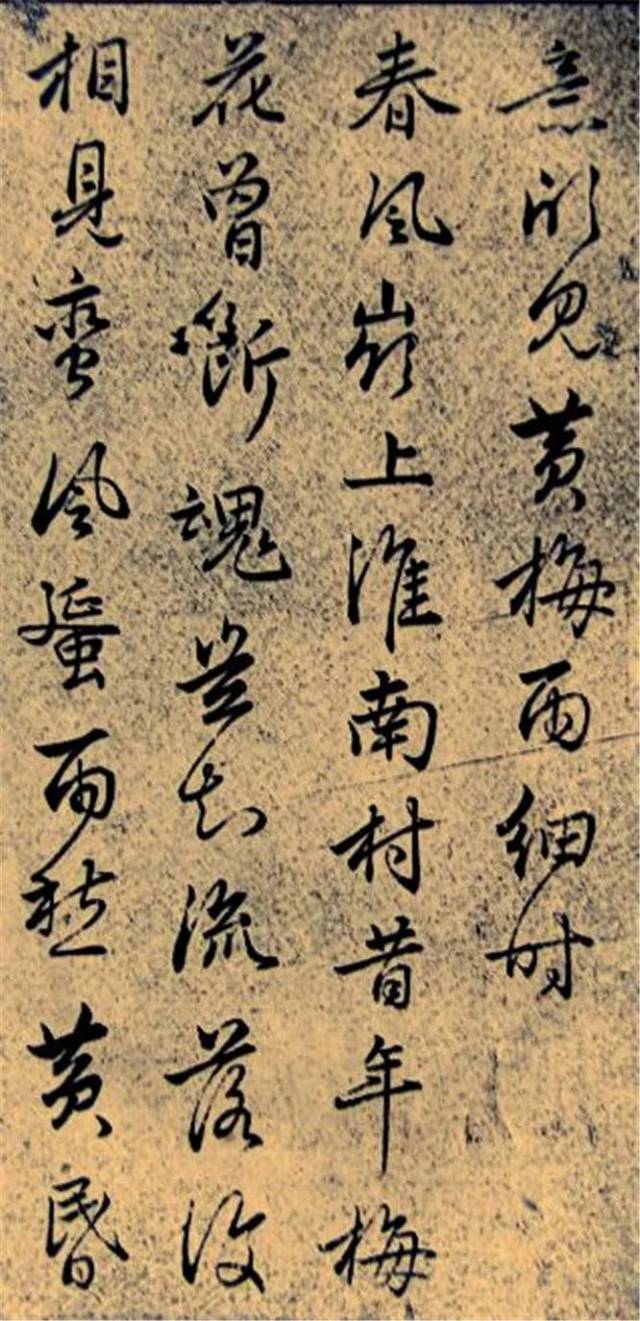 意見黄梅雨細時
春風嶺上淮南村昔年梅
花曾斷魂豈知流落復
相見蠻風蜑雨愁黄昏